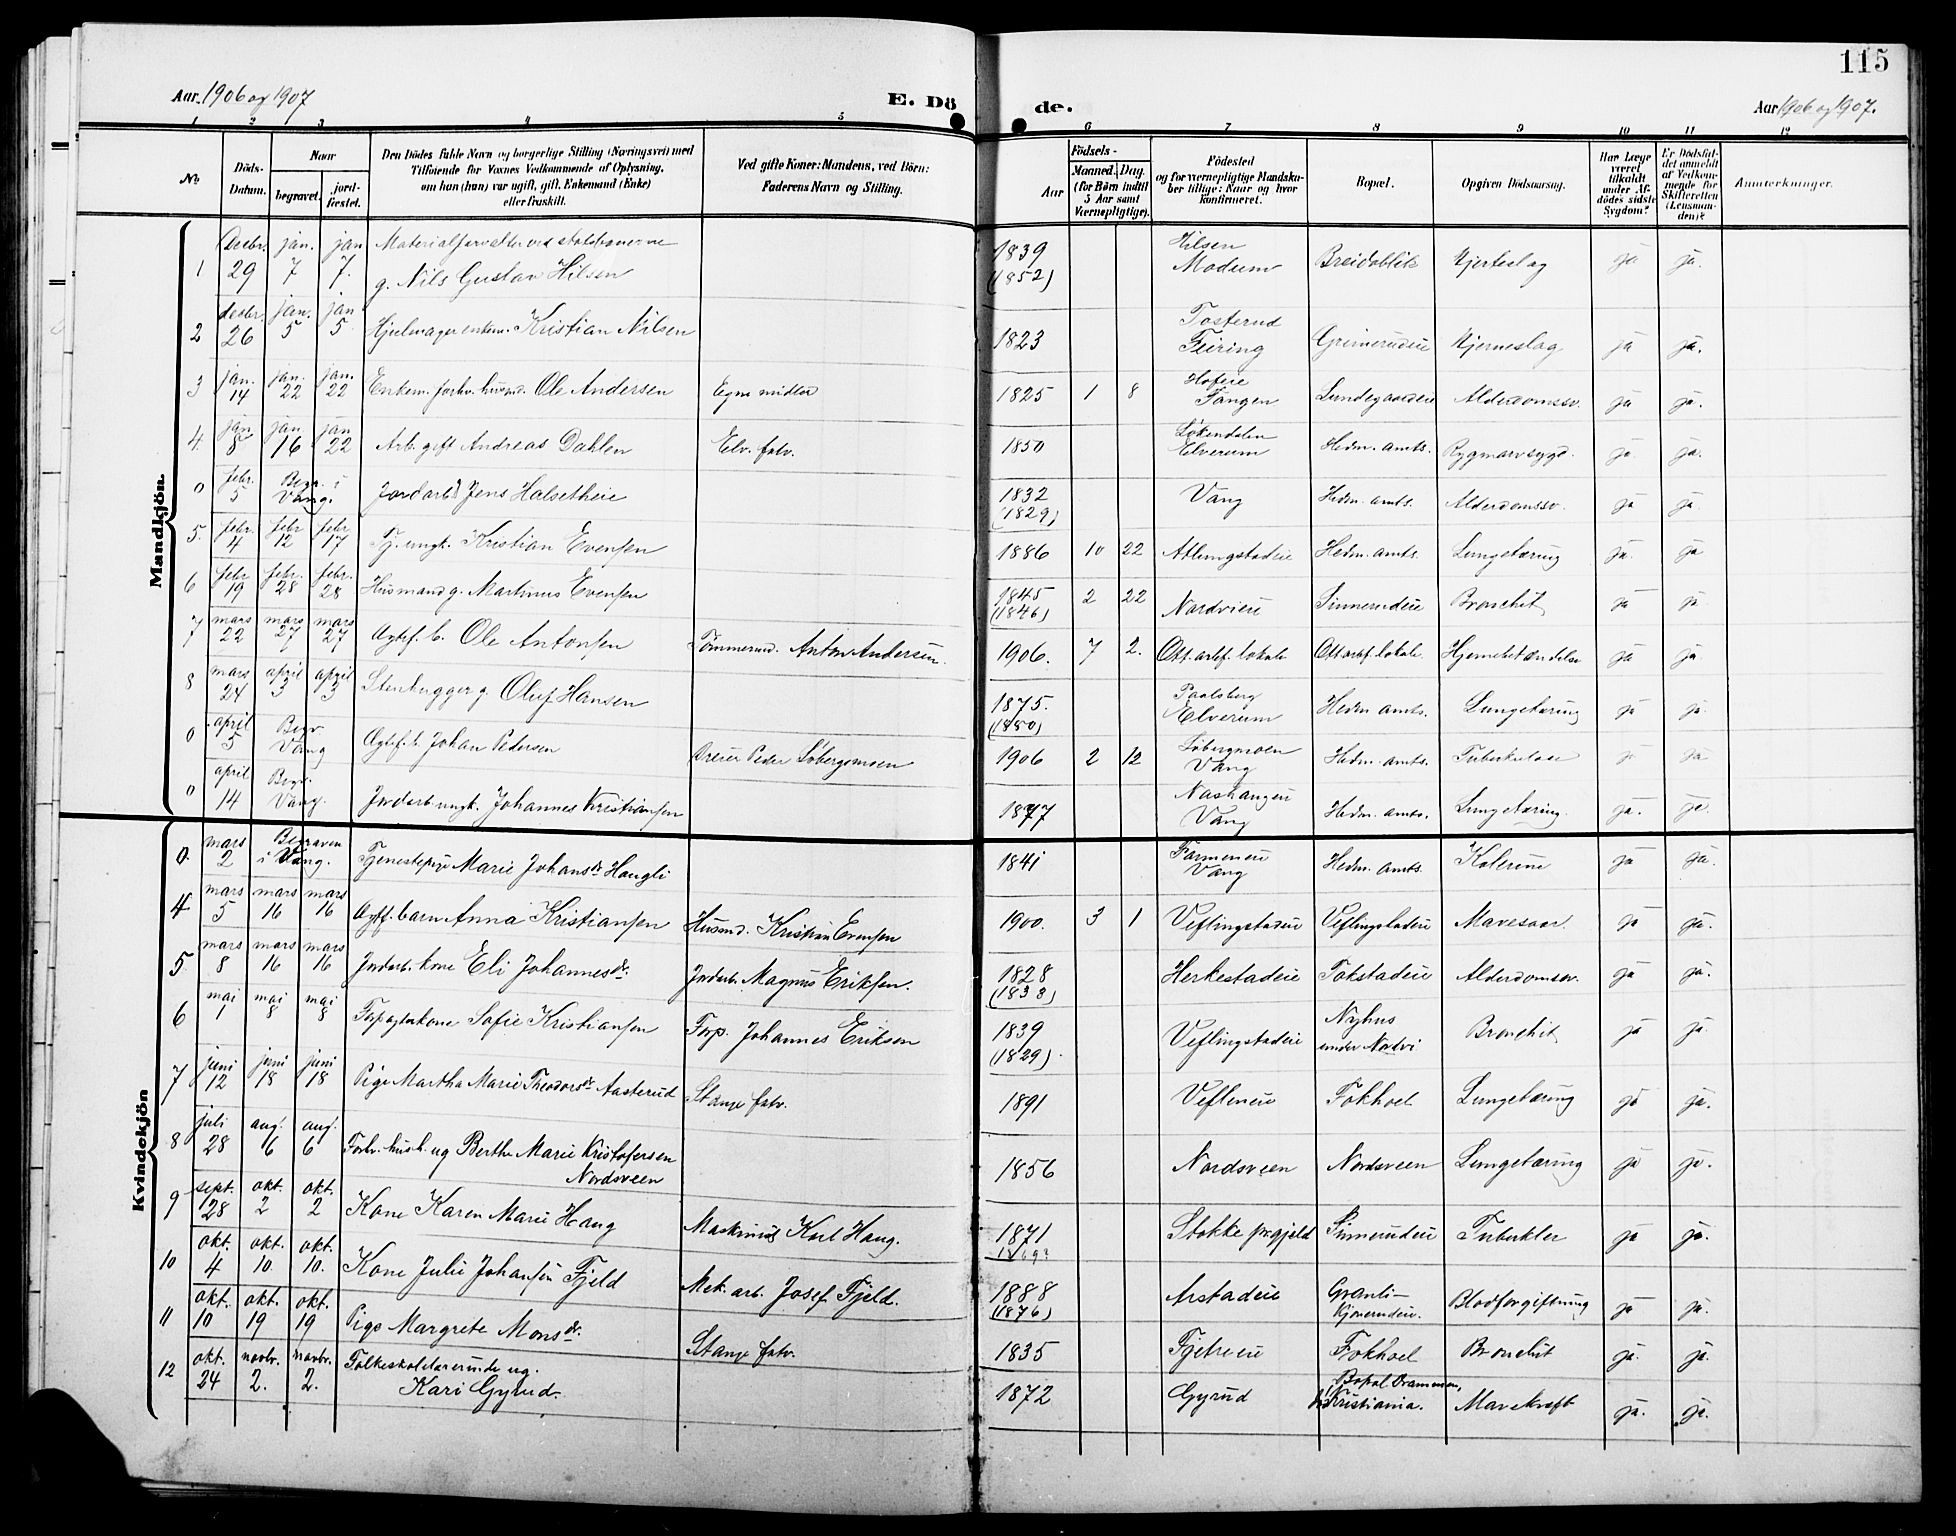 115
Aar 1906 og 1907
E. Dö
de.
Aar 1906 og 1907.
1 2 3 4 5 6 7 8 9 10 11 12
No
Döds-Datum.
Naar
begravet.
jordfæstet.
Den Dödes fulde Navn og borgerlige Stilling (Næringsvei) med
Tilföiende for Voxnes Vedkommende af Oplysning,
om han (hun) var ugift, gift, Enkemand (Enke)
eller fraskilt.
Ved gifte Koner: Mandens, ved Börn:
Faderens Navn og Stilling.
Födsels-
Aar
Maaned. Dag.
(for Børn indtil
5 Aar samt
Værnepligtige).
Födested
og for værnepligtige Mandskaber tillige: Naar og hvor
konfirmeret.
Bopæl.
Opgiven Dödsaarsag.
Har Læge
været
tilkaldt
under Afdödes sidste
Sygdom?
Er Dödsfaldet anmeldt
af Vedkommende for
Skifteretten
(Lensmanden)?
Anmærkninger.
Mandkjön.
1 Decbr. 29 jan. 7 jan 7. Materialforvalter ved statsbanerne g. Nils Gustav Hilsen 1839 (1852) Hilsen Modum Breidablik Hjerteslag ja ja.
2 decbr. 26 jan. 5 jan 5 Hjulmager enkem. Kristian Nilsen 1823 Tosterud Feiring Grimerudeie Hjerneslag ja ja.
3 jan. 14 jan. 22 jan. 22 Enkem. forhv. husmd. Ole Andersen Egne midler 1825 1 8 Hofeie Tangen Lundegaardeie Alderdomssv. ja ja.
4. jan 8 jan. 16 jan 22 Arb. gift Andreas Dahlen Elv. fatv. 1850 Løkendalen Elverum Hedm. amts. Rygmarvsygd. ja. ja.
0 febr. 5 Begr. i Vang. Jordarb. Jens Halsetheie 1832 (1829) Vang Hedm. amts. Alderdomssv. ja ja.
5. febr. 4 febr 12 febr. 17 Tj. ungk. Kristian Evensen 1886 10 22 Atlungstadeie Hedm. amts. Lungetæring ja. ja
6 febr. 19 febr. 28 febr. 28 Husmand g. Martinus Evensen 1845 (1846) 2 22 Nordvieie Sinnerudeie Bronchit ja ja
7 mars 22 mars 27 mars 27 Agtef. b. Ole Antonsen Tømmermd. Anton Andersen. 1906. 7 2. Ott. arbf. lokale Ott. arbf. lokale. Hjernebetændelse ja ja.
8 mars 24 april 3 april 3 Stenhugger g. Oluf Hansen 1875. (1850) Paalsberg Elverum Hedm amts. Lungetæring ja ja.
0 april 5 Begr Vang Agtef. b. Johan Pedersen Dreier Peder Løbergsmoen 1906 2 12 Løbergmoen Vang Hedm. amts. Tuberkulose ja ja
0 april 14 Begr. Vang. Jordarb. ungk. Johannes Kristiansen 1877 Vang Hedm. amts. Lungetæring. ja. ja.
Kvindekjön
0. mars 2 Begraven i Vang. Tjenestepige Marie Johansdr. Haugli 1841 Farmeneie Vang Hedm. amts. Kolerine ja ja.
4 mars 5 mars 16 mars 16 Agtf. barn Anna Kristiansen Husmd. Kristian Evensen 1900. 3 1 Veflingstadeie Veflingstadeie Mavesaar ja ja.
5 mars 8 mars 16 mars 16 Jordarb. kone Eli Johannesdr. Jordarb. Magnus Eriksen. 1828 (1838) Herkestadeie Tokstadeie Alderdomssv. ja ja.
6 mai 1 mai 8 mai 8 Forpagterkone Sofie Kristiansen Forp. Johannes Eriksen 1839 (1829) Veflingstadeie Nyhus under Nordvi Bronchit ja ja.
7 juni 12 juni 18 juni 18 Pige Martha Marie Theodorsdr. Aasterud Stange fatv. 1891 Vefleneie Fokhoel Lungetæring ja ja.
8 juli 28 aug. 6 aug. 6 Forhv. hush. ug Berthe Marie Kristofersen Nordsveen 1856 Nordsveen Nordsveen Lungetæring ja ja.
9 sept. 28 okt. 2 okt. 2 Kone Karen Marie Haug Maskinist Karl Haug. 1871 Stokke prgjeld Sinnerudeie Tuberkler ja ja.
10 okt. 4 okt. 10. okt. 10. Kone Julie Johansen Fjeld Mek. arb. Josef Fjeld. 1888 (1876) Arstadeie Granli- Kjonerudeie. Blodforgiftning ja ja.
11 okt. 10 okt. 19 okt. 19 Pige Margrete Monsdr. Stange fatv. 1835 Fjetreeie Fokhoel Bronchit ja. ja.
12 okt. 24 novbr. 2. novbr. 2. Folkeskolelærerinde ug. Kari Gyrud. 1872 Gyrud Bopæl Drammen, Kristiania. Mavekræft ja. ja.